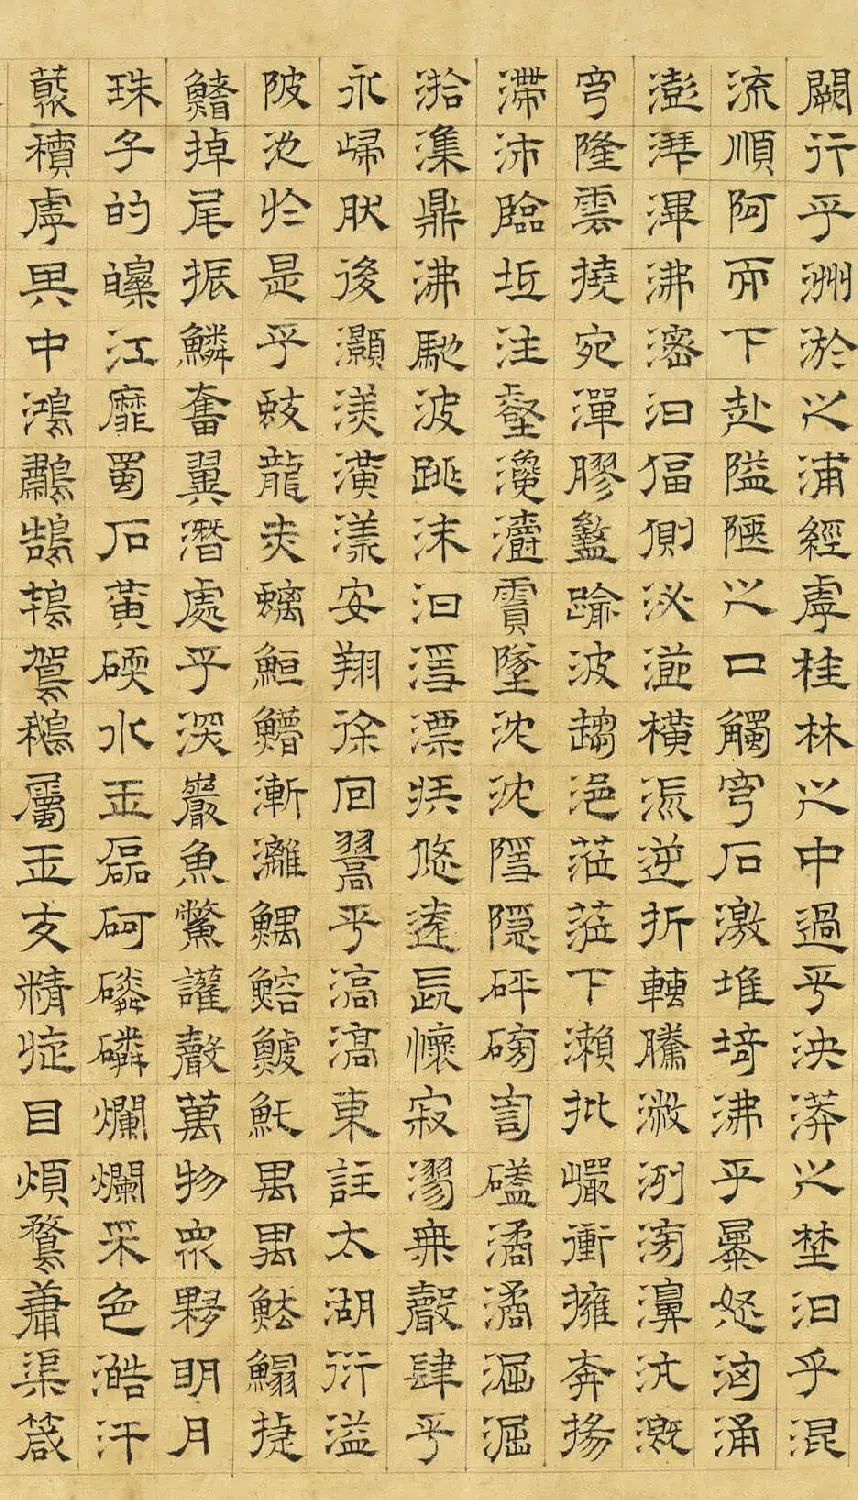 闕行乎洲淤之浦經虖桂林之中過乎泱漭之埜汩乎混
流順阿而下赴隘陿之口觸穹石激堆埼沸乎暴怒洶涌
澎湃滭沸滵汩偪側泌瀄橫流逆折轉騰潎洌滂濞沆溉
穹隆雲撓宛潬膠盭踰波趨浥蒞蒞下瀨批巖衝擁奔揚
滯沛臨坻注壑瀺灂霣墜沈沈隱隱砰磅訇磕潏潏淈淈
湁潗鼎沸馳波跳沫汩㴔漂疾悠遠長懷寂漻無聲肆乎
永歸然後灝溔潢漾安翔徐回翯乎滈滈東注太湖衍溢
陂池於是乎蛟龍赤螭䱭䲛漸離鰅鰫鰬魠禺禺魼鰨揵
鰭掉尾振鱗奮翼潛處乎深巖魚鱉讙聲萬物眾夥明月
珠子的皪江靡蜀石黃碝水玉磊砢磷磷爛爛采色澔汗
藂積虖其中鴻鷫鵠鴇鴐鵝屬玉交精旋目煩鶩庸渠箴